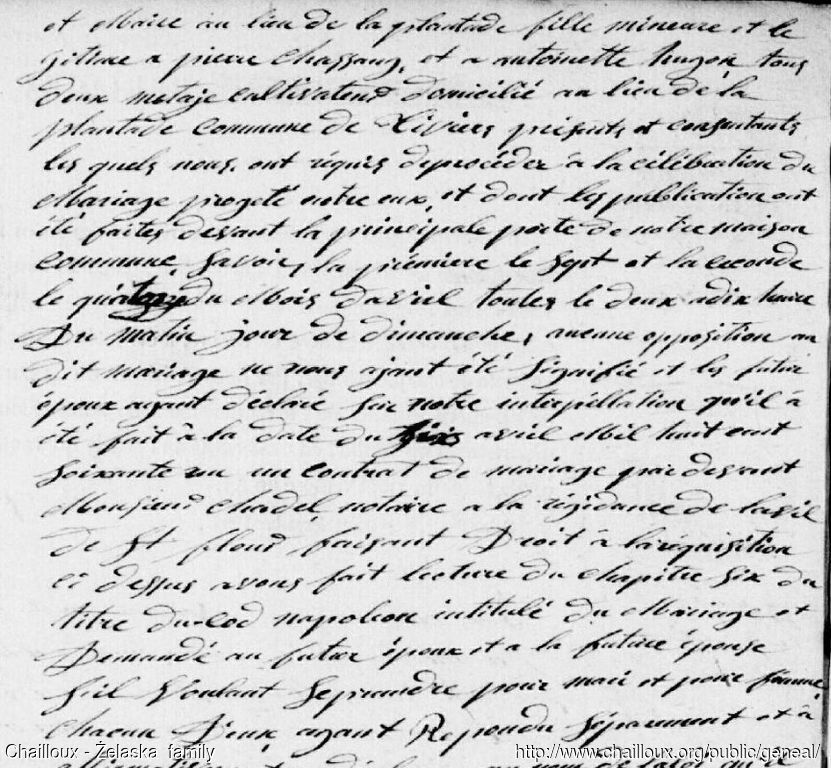 et Marie au lieu de la plantade fille mineure et le
gitime a pierre Chassang, et a antoinette hugon tous
deux metaje cultivateur domicilié au lieu de la
plantade Commune de Liviers présents et consentants
les quels nous ont réquis de procéder à la célébration du
Mariage projeté entre eux, et dont les publication ont
été faites devant la principale porte de notre maison
commune, Savoir, la prémiere le Sept et la ceconde
le quatorze du Mois d'avril toutes le deux a dix heure
Du matin jour de dimanche, aucune opposition au
dit mariage ne nous ajant été Signifié et les futur
époux ayant déclaré sur notre interpéllation qu'il a
été fait à la date du six avril Mil huit cent
soixante un un contrat de mariage par devant
Monsieur Chadel, notaire a la résidance de la vil
de St flour, faisant Droit à la réquisition
ci dessus avons fait lecture du chapitre six du
titre du cod napoleon intitulé du Mariage et
Demandé au futur époux et a la future épouse
s'il Voulant se prandre pour mari et pour famme,
chacun D'eux ayant Repondu Séparement et à
Chailloux - Želaska family
http://www.chailloux.org/public/geneal/